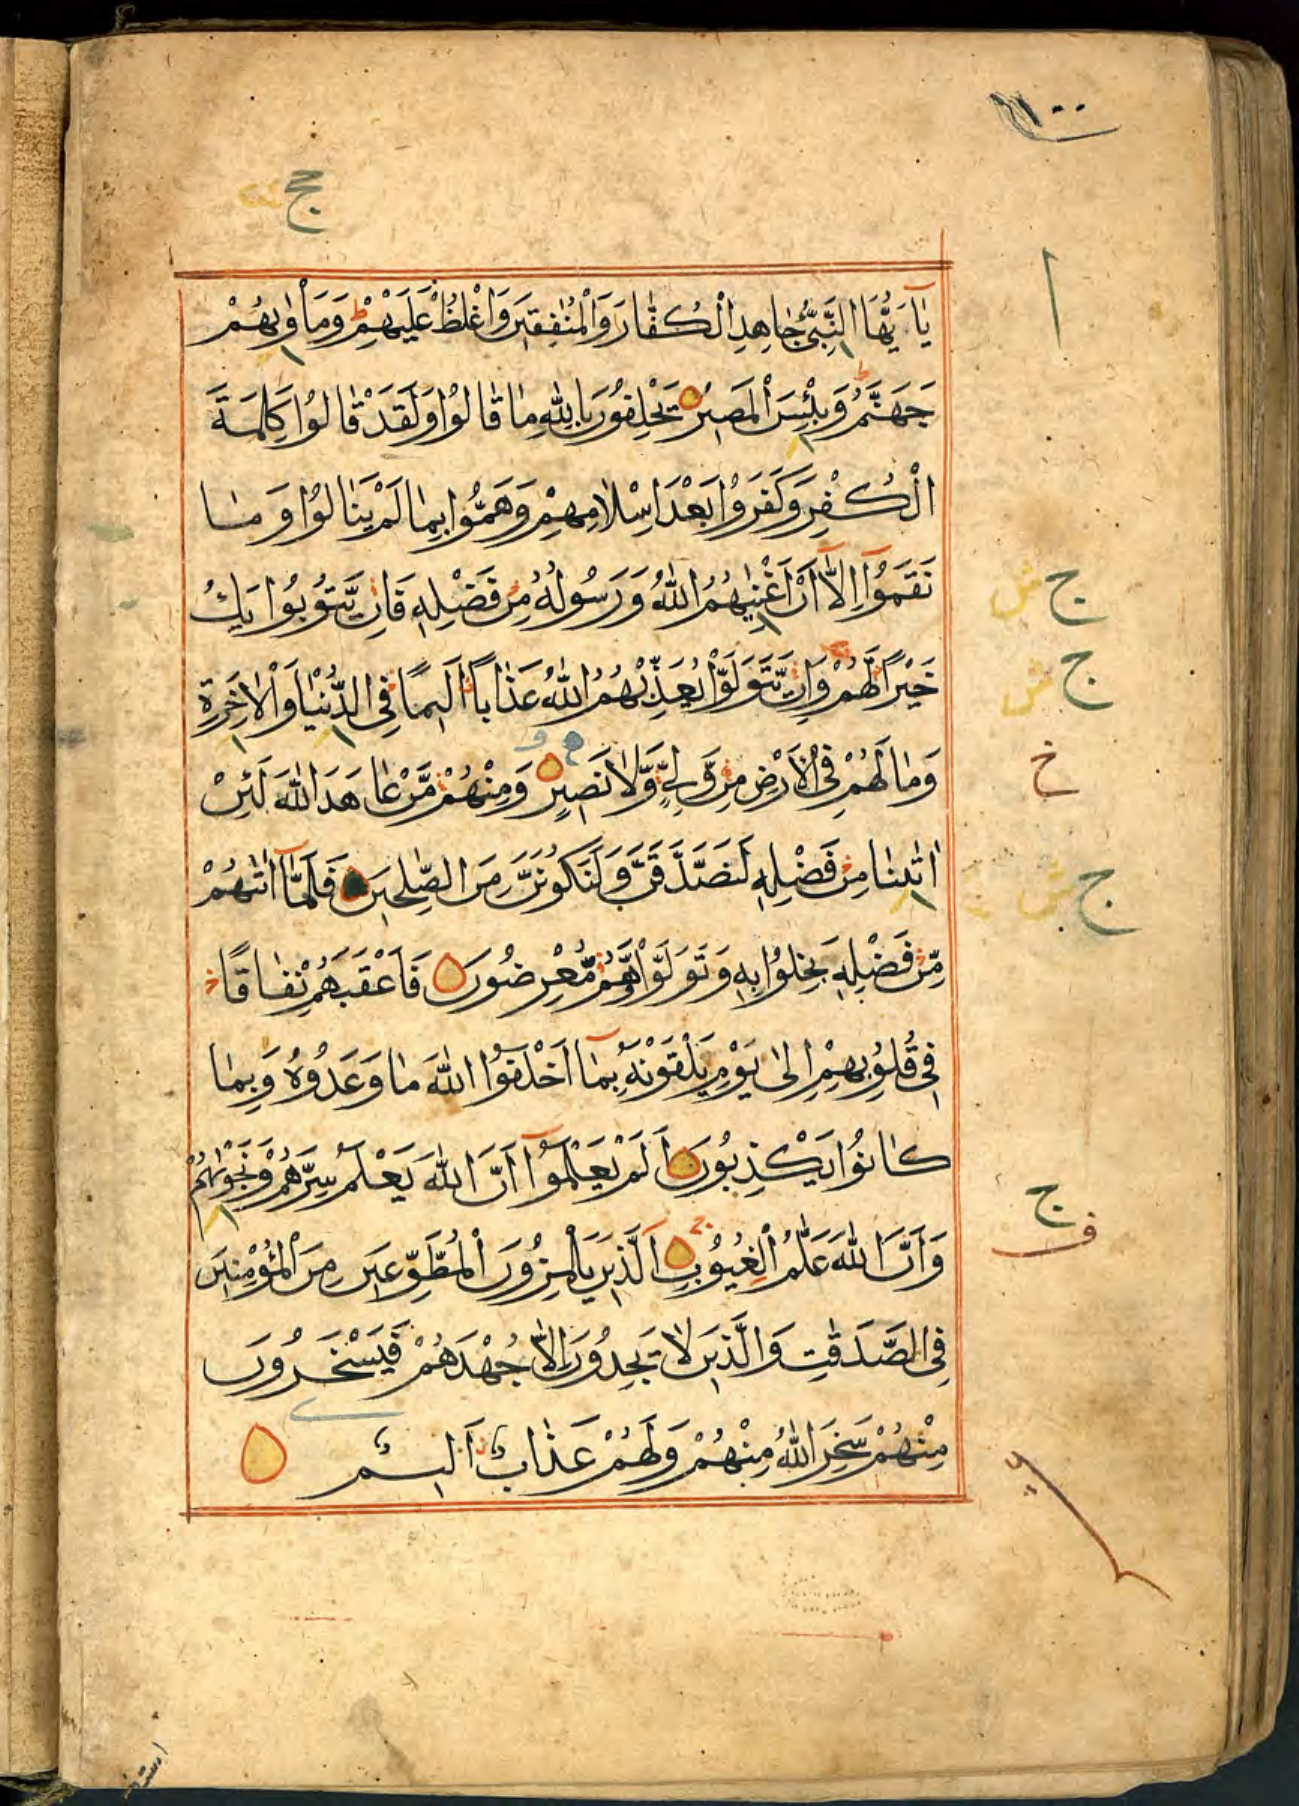 ١٠٠
ج
يٰٓاَيُّهَا النَّبِيُّ جٰاهِدِ الْكُفّٰارَ وَالْمُنٰفِقِينَ وَاغْلُظْ عَلَيْهِمْ ط وَمَأْوٰىهُمْ
جَهَنَّمُ ط وَبِئْسَ الْمَصِيرُ يَحْلِفُونَ بِاللّٰهِ مٰا قٰالُوْا وَلَقَدْ قٰالُوْا كَلِمَةَ
الْكُفْرِ وَكَفَرُوْا بَعْدَ اِسْلٰامِهِمْ وَهَمُّوْا بِمٰا لَمْ يَنٰالُوْا وَ مٰا
نَقَمُوْٓا اِلآَّ اَنْ اَغْنٰىهُمُ اللّٰهُ وَ رَسُولُهُ مِنْ فَضْلِهِ فَاِنْ يَّتُوبُوْا يَكُ
ج ش
خَيْرًا لَّهُمْ وَاِنْ يَّتَوَلَّوْا يُعَذِّبْهُمُ اللّٰهُ عَذٰابًا اَلِيمًا فِي الدُّنْيٰا وَالْاٰخِرَةِ
ج ش
وَمٰا لَهُمْ فِي الْاَرْضِ مِنْ وَّلِيٍّ وَّلٰا نَصِيرٍ وَمِنْهُمْ مَّنْ عٰاهَدَ اللّٰهَ لَئِنْ
خ
اٰتٰىنٰا مِنْ فَضْلِهِ لَنَصَّدَّقَنَّ وَلَنَكُونَنَّ مِنَ الصّٰلِحِينَ فَلَمَّآ اٰتٰىهُمْ
ج ش
مِّنْ فَضْلِهِ بَخِلُوْا بِهِ وَتَوَلَّوْا وَّهُمْ مُّعْرِضُونَ فَاَعْقَبَهُمْ نِفٰاقًا
فِي قُلُوبِهِمْ اِلٰى يَوْمِ يَلْقَوْنَهُ بِمَآ اَخْلَفُوا اللّٰهَ مٰا وَعَدُوهُ وَبِمٰا
كٰانُوْا يَكْذِبُونَ اَلَمْ يَعْلَمُوْٓا اَنَّ اللّٰهَ يَعْلَمُ سِرَّهُمْ وَنَجْوٰىهُمْ
ج
وَاَنَّ اللّٰهَ عَلّٰمُ الْغُيُوبِ اَلَّذِينَ يَلْمِزُونَ الْمُطَّوِّعِينَ مِنَ الْمُؤْمِنِينَ
ف
فِي الصَّدَقٰتِ وَالَّذِينَ لٰا يَجِدُونَ اِلاّٰ جُهْدَهُمْ فَيَسْخَرُونَ
مِنْهُمْ سَخِرَ اللّٰهُ مِنْهُمْ وَلَهُمْ عَذٰابٌ اَلِيمٌ